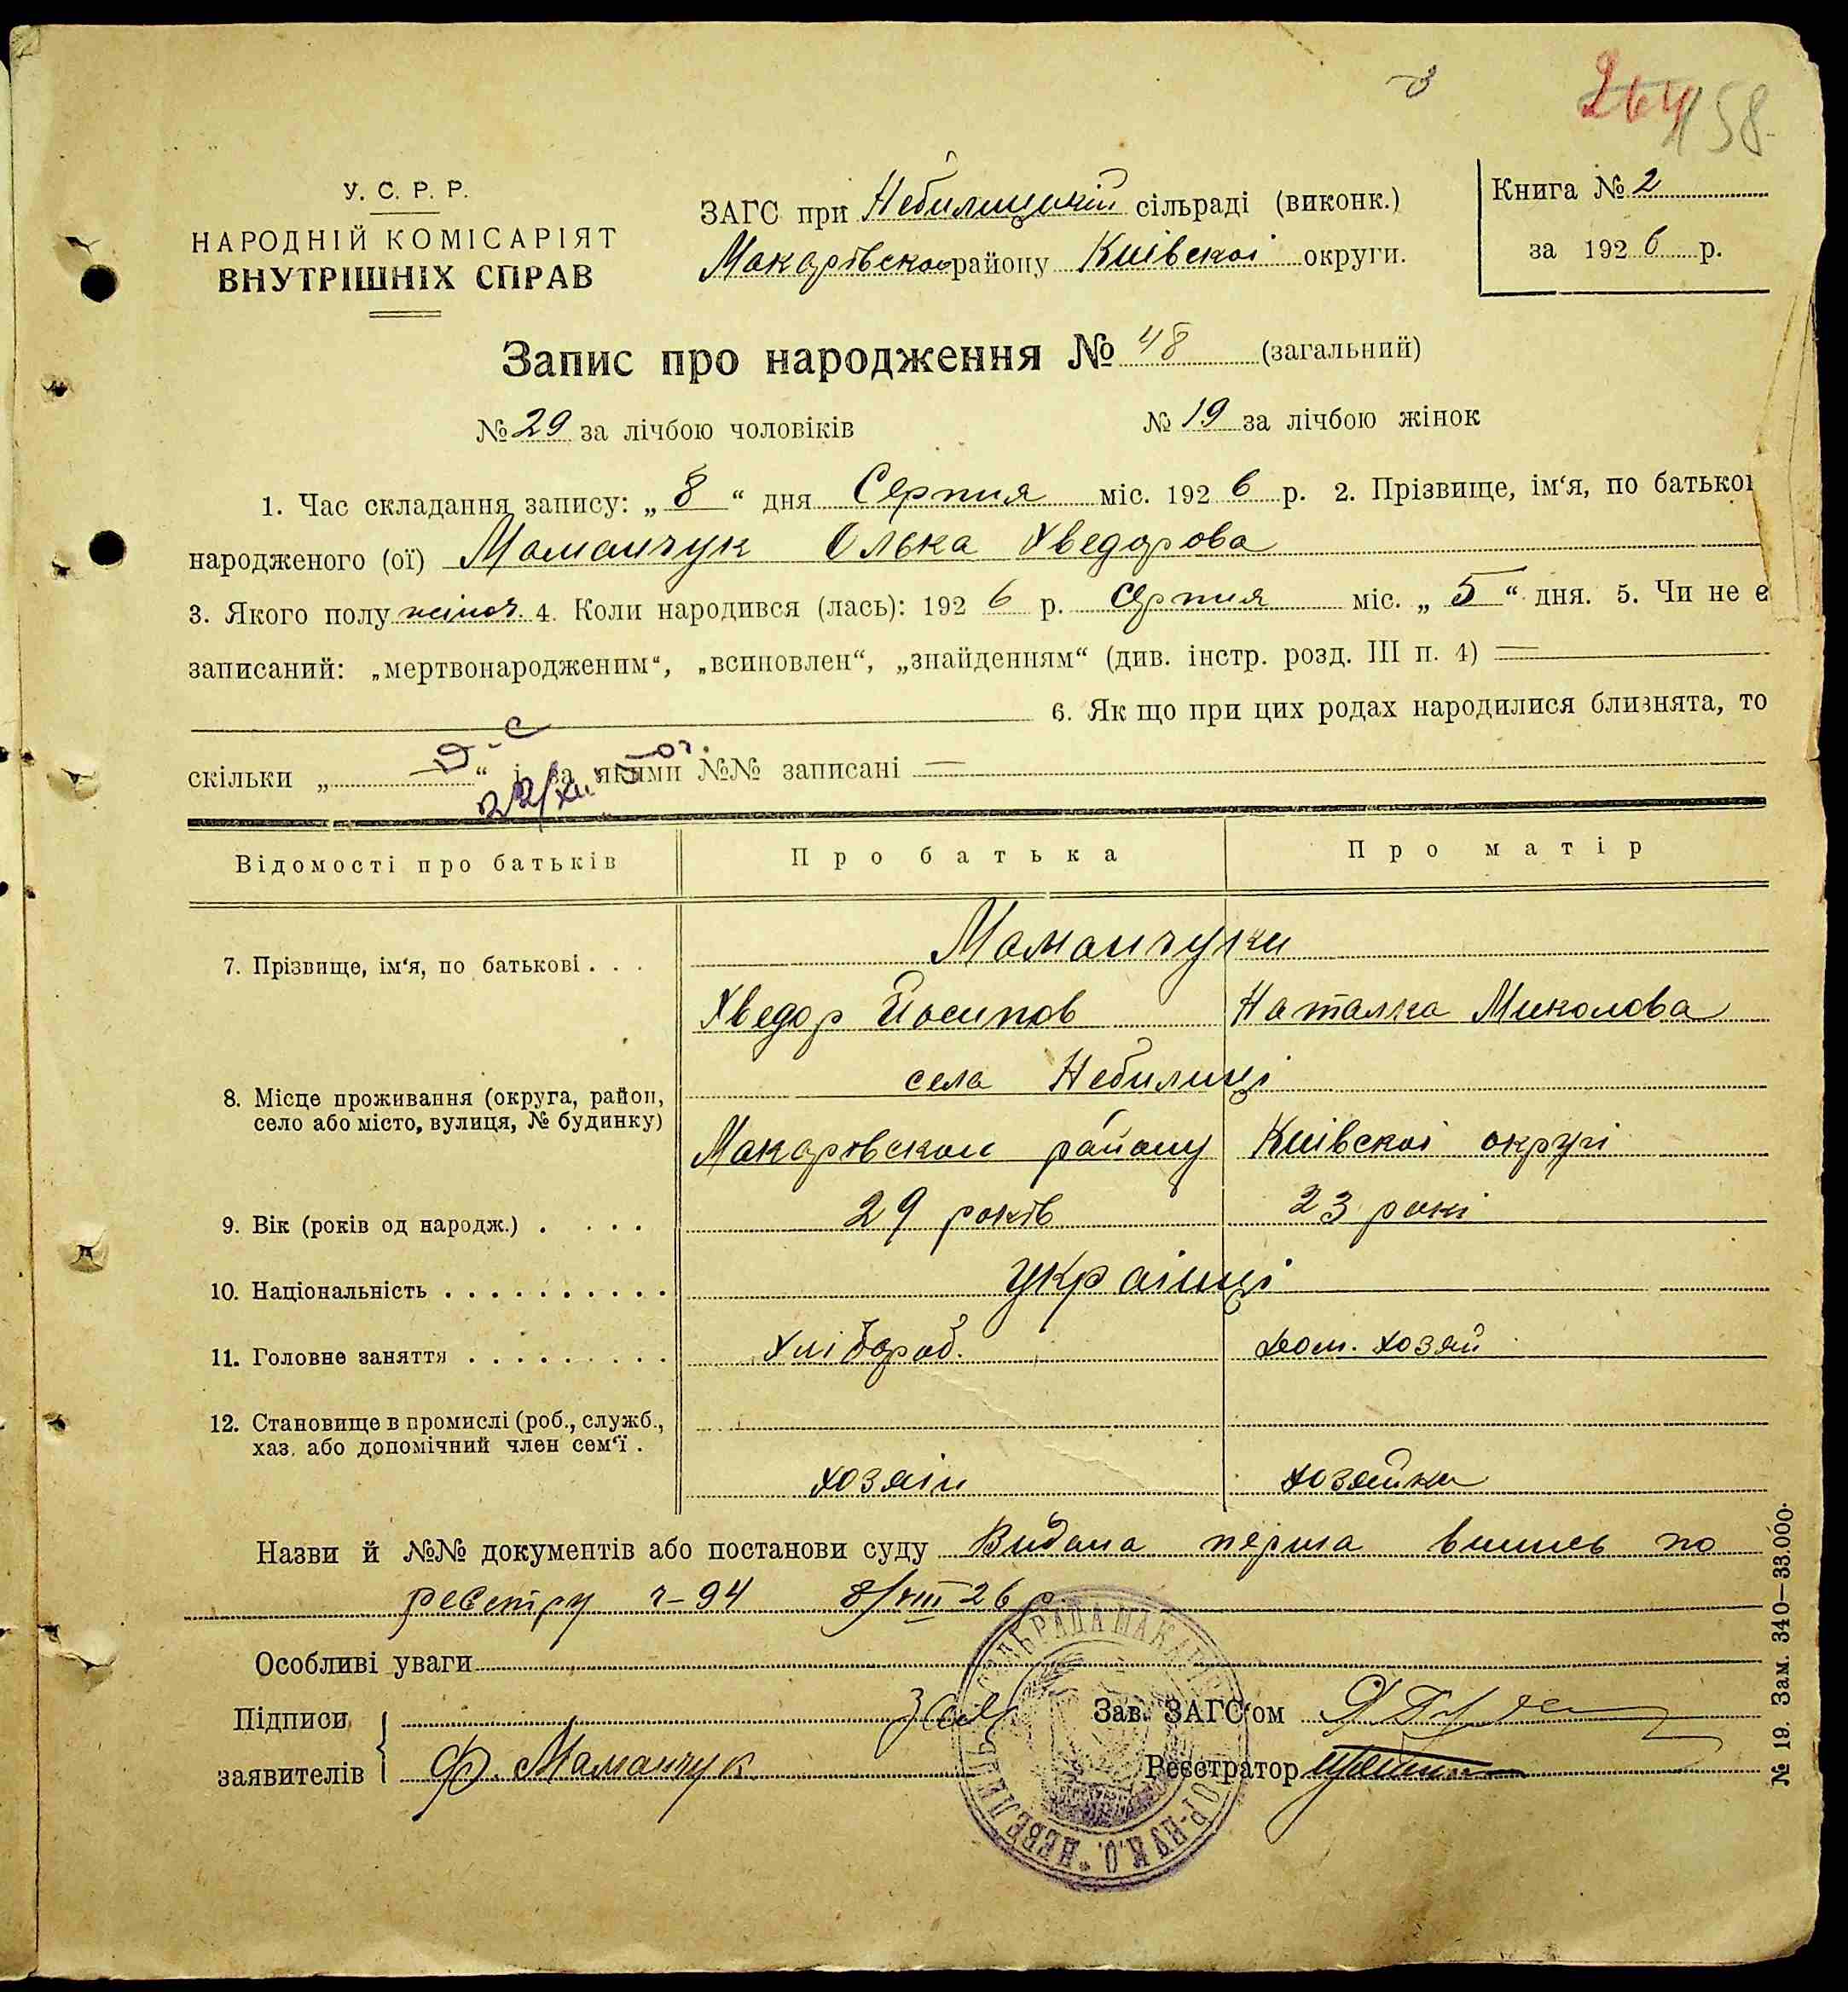 264 158
У. С. Р. Р.
НАРОДНІЙ КОМІСАРІЯТ
ВНУТРІШНІХ СПРАВ
ЗАГС при Небилицькій сільраді (виконк.)
Макарівськои району Київскоі округи.
Книга № 2
за 1926 р.
Запис про народження № 48 (загальний)
№ 29 за лічбою чоловіків № 19 за лічбою жінок
1. Час складання запису: „ 8 “ дня Серпня міс. 1926 р. 2. Прізвище, ім‘я, по батькоі
народженого (ої) Мамончук Олька Хведорова
3. Якого полу жіноч. 4. Коли народився (лась): 1926 р. Серпня міс. „ 5 “ дня. 5. Чи не е
записаний: „мертвонародженим“, „всиновлен“, „знайденням“ (див. інстр. розд. III п. 4) —
6. Як що при цих родах народилися близнята, то
скільки „ — “ і за якими №№ записані —
22/XII
Відомості про батьків Про батька Про матір
7. Прізвище, ім‘я, по батькові . . . Мамончуки
Хведор Йосипов Наталка Миколова
8. Місце проживання (округа, район, село або місто, вулиця, № будинку) села Небилиці
Макаровскои району Київскоі округі
9. Вік (років од народж.) . . . . 29 років 23 рокі
10. Національність . . . . . . . . . . Українці
11. Головне заняття . . . . . . . . . Хлібороб. дом. хозяй
12. Становище в промислі (роб., служб.,
хаз. або допомічний член сем‘ї .
хозяїн хозяйка
Назви й №№ документів або постанови суду Видана перша випись по
реєстру ч-94 8/VIII 26 р.
Особливі уваги
Підписи Зав. ЗАГС‘ом
заявителів Ф. Мамончук Реєстратор
№ 19. Зам. 340—33.000.